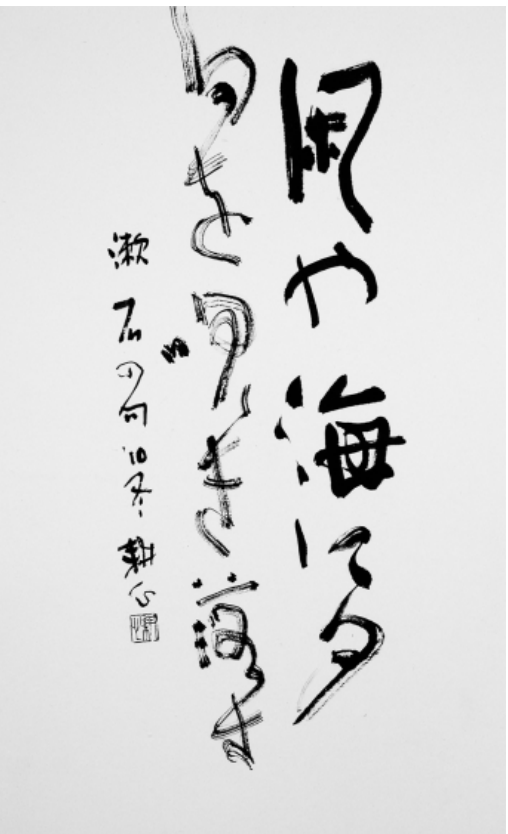 凩や海に夕
日を吹き落す
漱石の句 '10冬 耕心